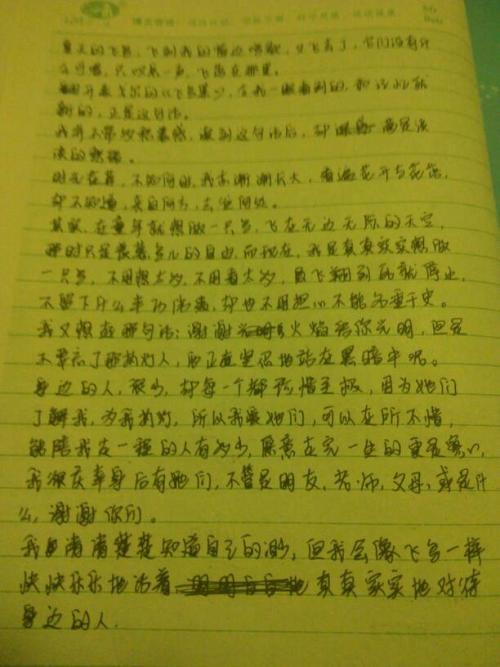 夏天的飞鸟，飞到我的窗边唱歌，又飞去了，它们没有什
么可唱，只叹息一声，飞落在那里。
翻开泰戈尔的《飞鸟集》，令我一眼看到的，和记忆犹
新的，正是这句话。
我并不常多愁善感，读到这句话后，却满是淡
淡的愁绪。
时光荏苒，不如何时，我亦渐渐长大，看遍花开与花落，
却不知道，来自何方，去往何处。
其实，在童年就想做一只鸟，飞在无边无际的天空，
那时只是羡慕鸟儿的自由，而现在，我是真真实实想做
一只鸟，不用想太多，不用看太多，只飞翔到死就停止，
不留下什么丰功伟绩，却也不用担心不能名垂千史。
我又想起那句话：谢谢火焰给你光明，但是
不要忘了那执灯人，他正在坚忍地站在黑暗中呢。
身边的人，很少，却每一个都珍惜至极，因为她们
了解我，为我执灯，所以我爱她们，可以在所不惜，
能陪我走一程的人有多少，愿意走完一生的更是寥寥，
我很庆幸身后有她们，不管是朋友，老师，父母，或是什
么，谢谢你们。
我清清楚楚知道自己的渺小，但我会像飞鸟一样
快快乐乐地活着 真真实实地对待
身边的人．